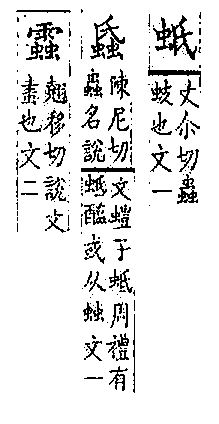 蚳
丈尒切蟲
蚑也文一
陳尼切
蟲名說
文螘子蚳周禮有
蚳醢或从䖵文一
翹移切說文
畫也文二